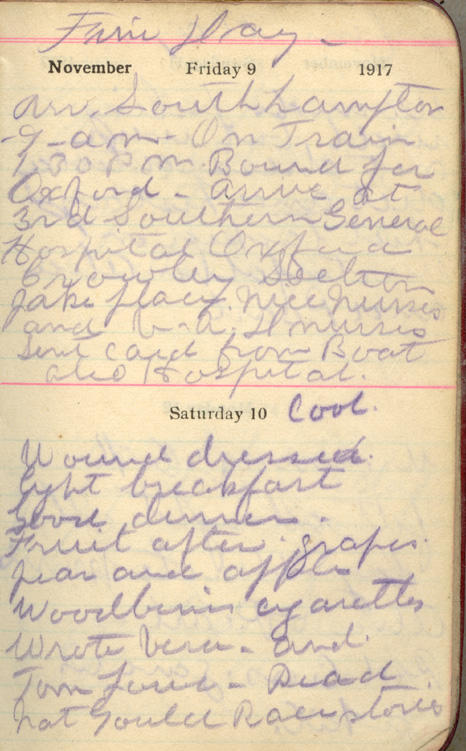 Fine Day -
November Friday 9 1917
arr. Southhampton
9-a-m- On Train
1.30 P.M. Bound for
Oxford - arrive at
3rd Southern General
Hospital Oxford
Cowley Section
fake place. Nice Nurses
and V-A-D nurses
Sent card from Boat
also Hospital.
Saturday 10 Cool.
Wound dressed.
light breakfast
Good dinner.
Fruit after. grapes.
pear and apple
Woodbines cigarettes
Wrote Vera - and
Tom - Read
Nat Gould Race stories